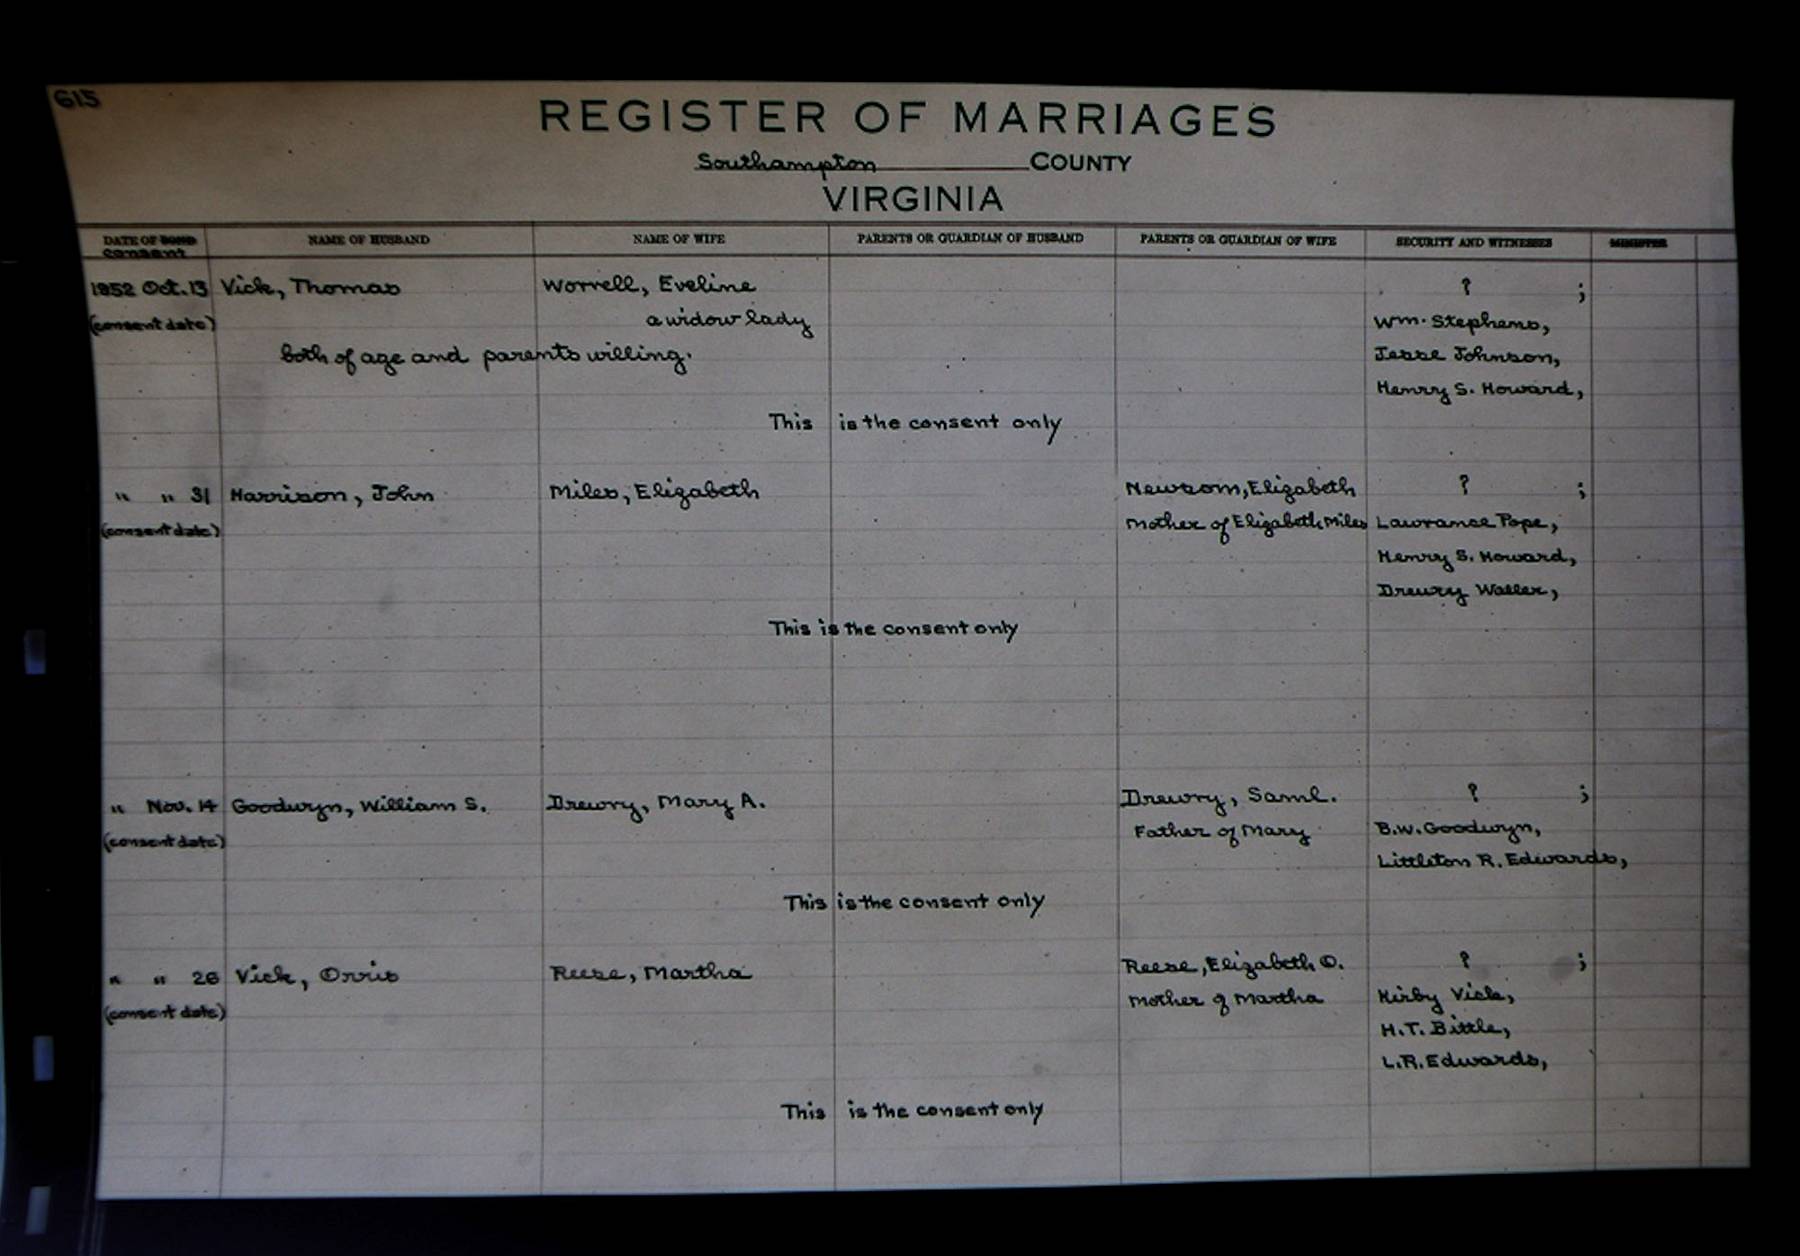 615
REGISTER OF MARRIAGES
Southampton COUNTY
VIRGINIA
DATE OF BOND NAME OF HUSBAND NAME OF WIFE PARENTS OR GUARDIAN OF HUSBAND PARENTS OR GUARDIAN OF WIFE SECURITY AND WITNESSES MINISTER
consent
1852 Oct. 13 Vick, Thomas Worrell, Eveline ? ;
(consent date) a widow lady Wm. Stephens,
both of age and parents willing. Jesse Johnson,
Henry S. Howard,
This is the consent only
" " 31 Harrison, John Miles, Elizabeth Newsom, Elizabeth ? ;
(consent date) Mother of Elizabeth Miles Lawrance Pope,
Henry S. Howard,
Drewry Waller,
This is the consent only
" Nov. 14 Goodwyn, William S. Drewry, Mary A. Drewry, Saml. ? ;
(consent date) Father of Mary B.W. Goodwyn,
Littleton R. Edwards,
This is the consent only
" " 26 Vick, Orris Reese, Martha Reese, Elizabeth O. ? ;
(consent date) Mother of Martha Kirby Vick,
H.T. Bittle,
L.R. Edwards,
This is the consent only